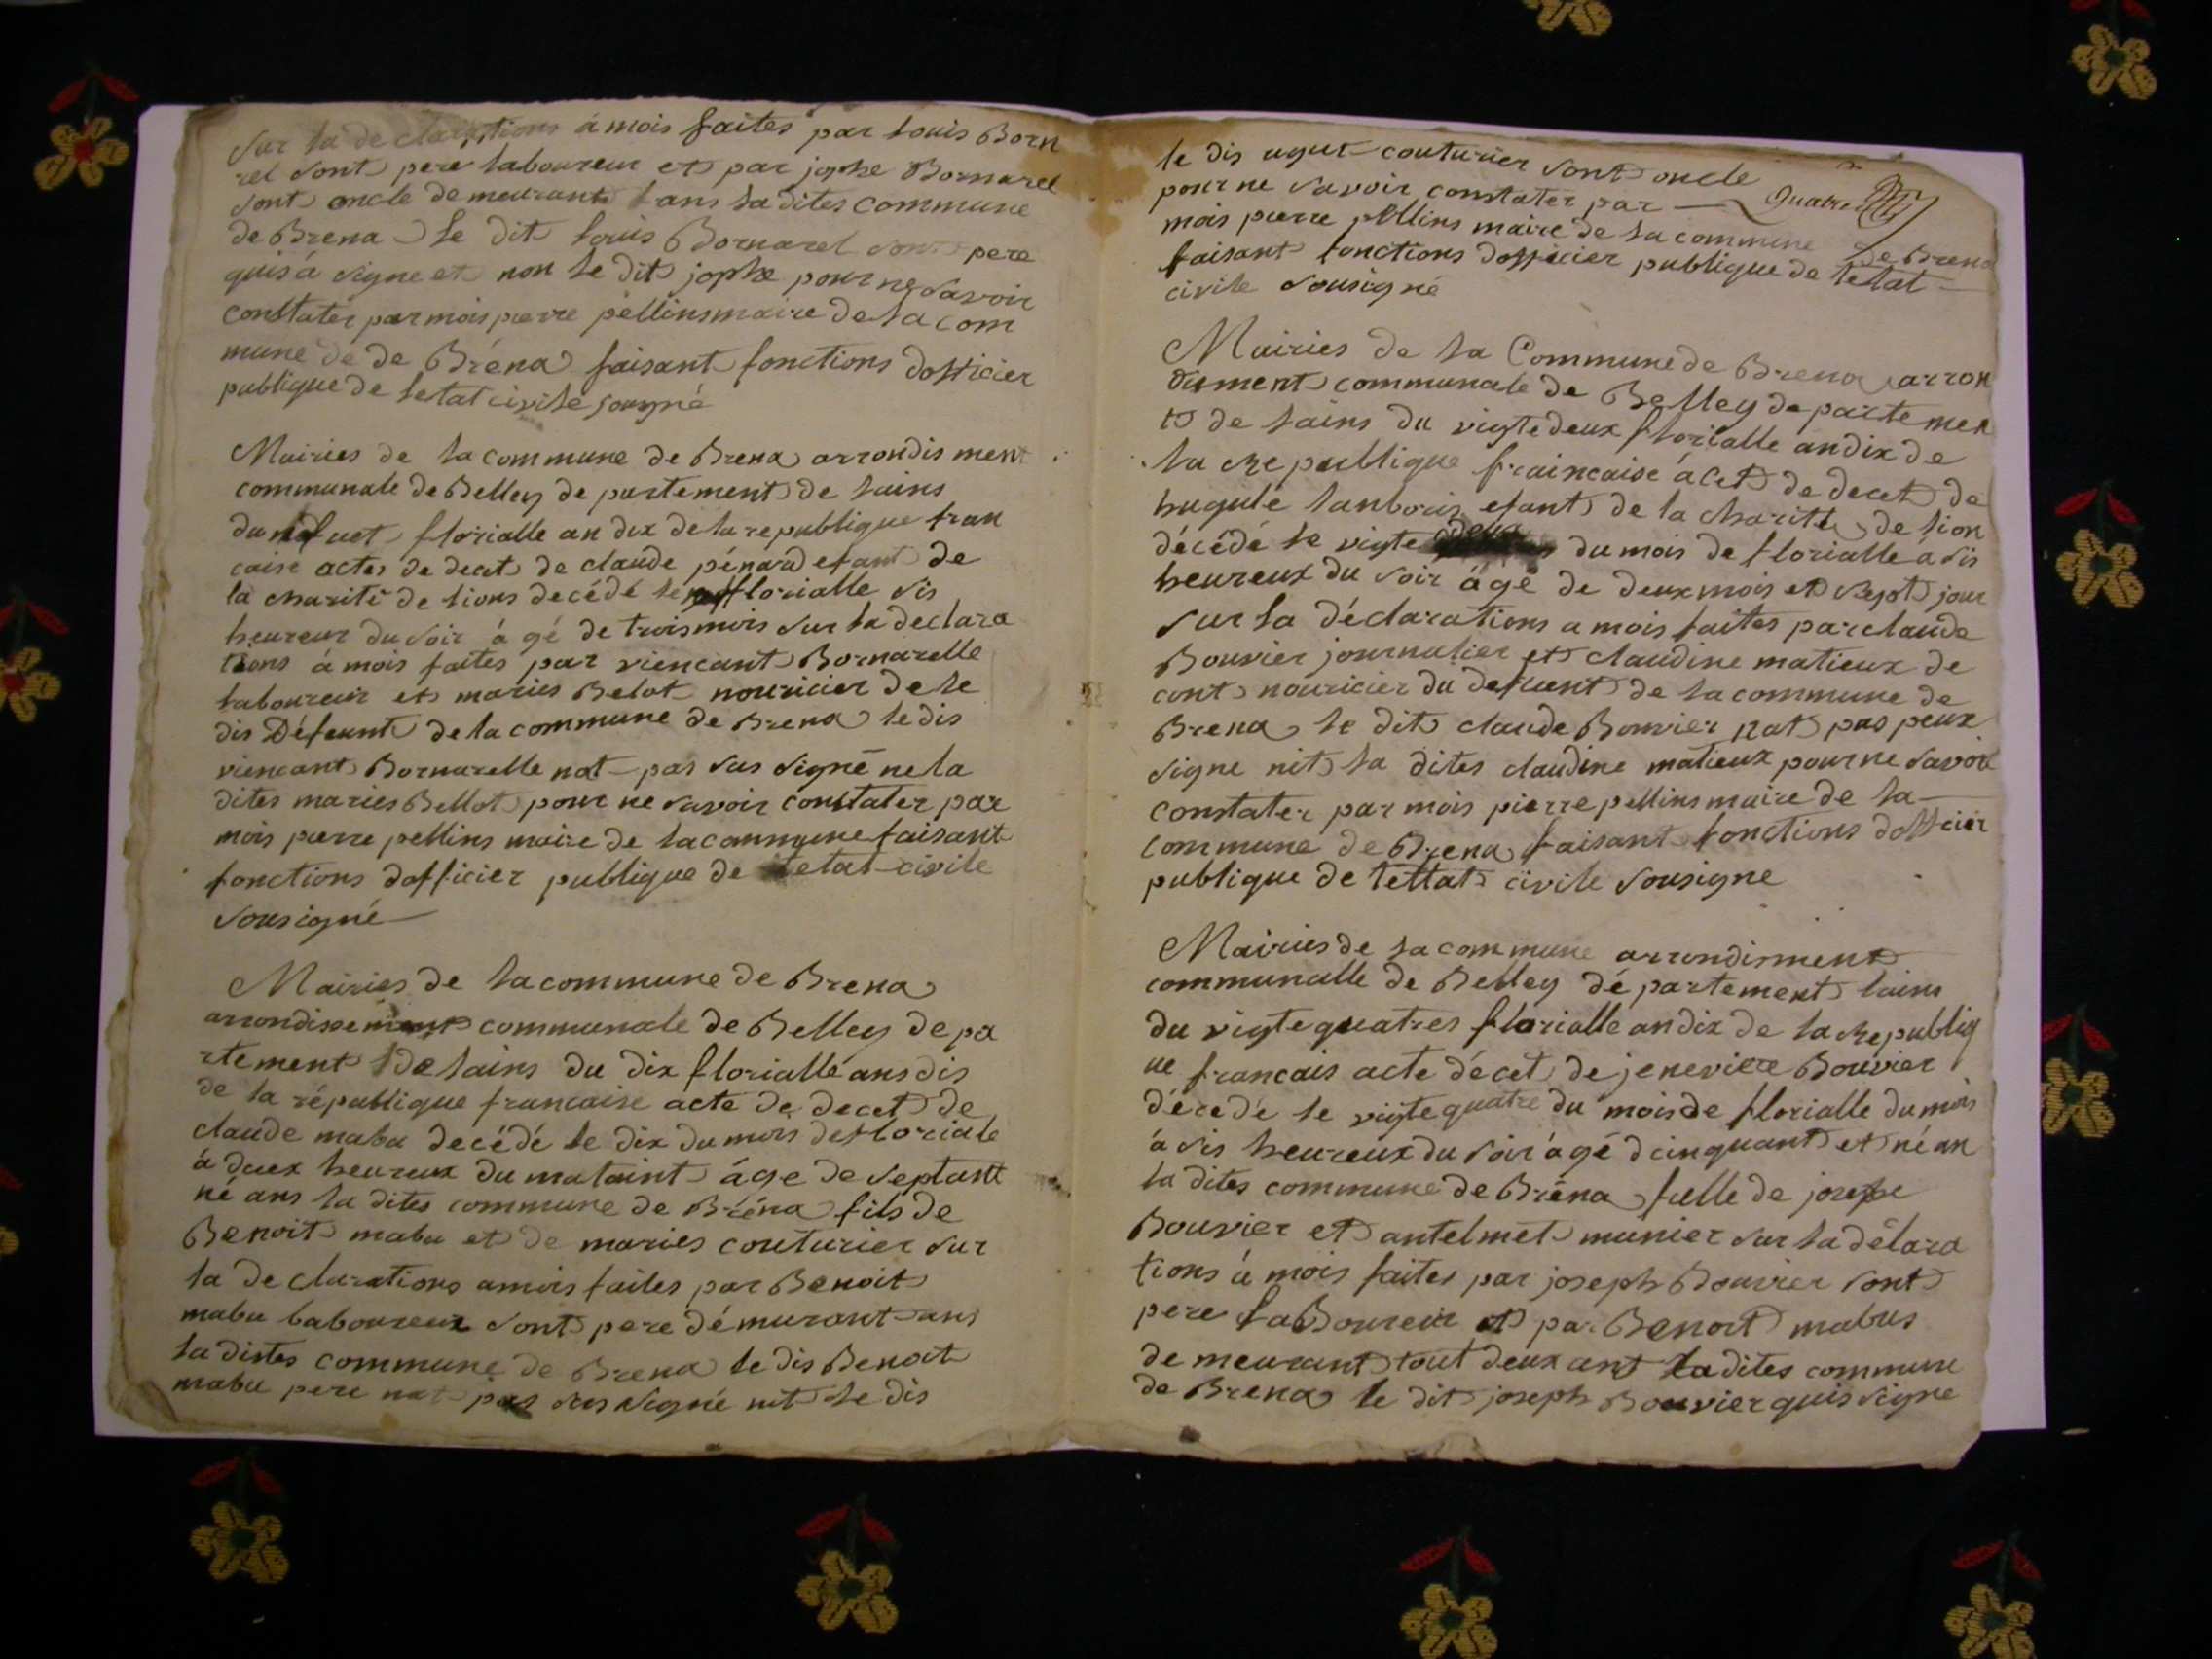 Sur la de clarations à mois faites par louis Born
rel sont pere laboureur et par jophe Bornarel
sont oncle de meurant ans la dites commune
de Brena le dit louis Bornarel sont pere
quis à signe et non le dit jophe pour ne savoir
constater par mois pierre pellins maire de la com
mune de de Bréna faisant fonctions dofficier
publique de letat civile sousigné
Mairies de la commune de Brena arrondis ment
communale de Belley de partement de lains
du florialle an dix de la republique fran
caise actes de decet de claude pénard efant de
la charité de lions decédé le florialle sis
heureux du soir à gé de trois mois sur la declara
tions à mois faites par viencant Bornarelle
laboureur et maries Belot nouricier de le
dis Défeunt de la commune de Brena le dis
viencant Bornarelle nat pas sus signé ne la
dites maries Bellot pour ne savoir constater par
mois pierre pellins maire de la commune faisant
fonctions dofficier publique de letat civile
sousigné
Mairies de la commune de Brena
arrondissement communale de Belley de pa
rtement de lains du dix florialle ans dis
de la république francaise acte de decet de
claude mabu decédé le dix du mois de floriale
à deux heureux du mataint áge de septant
né ans la dites commune de Bréna fils de
Benoit mabu et de maries couturier sur
la de clarations a mois faites par Benoit
mabu laboureur sont pere démurant ans
la distes commune de Brena le dis Benoit
mabu pere nat pas sus signé nit le dis
le dis couturier sont oncle
quatre
pour ne savoir constater par
mois pierre pellins maire de la commune de Brena
faisant fonctions dofficier publique de letat
civile sousigné
Mairies de la Commune de Brena arron
disment communale de Belley de partemen
t de lains du vigte deux florialle an dix de
la republique fraincaise à cet de decet de
hugule lanboris efant de la charité de lion
décédé le vigte deux du mois de florialle a sis
heureux du soir ägé de deux mois et sept jour
sur la déclarations a mois faites par claude
Bouvier journalier et claudine matieux de
cont nouricier du defuent de la commune de
Brena le dit claude Bouvier nat pas peux
signe nit la dites claudine matieux pour ne savoir
constater par mois pierre pellins maire de la
commune de Brena faisant fonctions dofficier
publique de lettat civile sousigne
Mairies de la commune arrondisment
communalle de Belley département lains
du vigte quatres florialle an dix de la republiq
ue francais acte décet de jeneviere Bouvier
décedé le vigte quatre du mois de florialle du mois
à sis heureux du soir àgé dcinquant et né an
la dites commune de Bréna fielle de josephe
Bouvier et antelmet munier sur la délara
tions à mois faites par joseph Bouvier sont
pere laboureur et par Benoit mabus
de meurant tout deux ant la dites commune
de Brena le dit joseph Bouvier quis signe